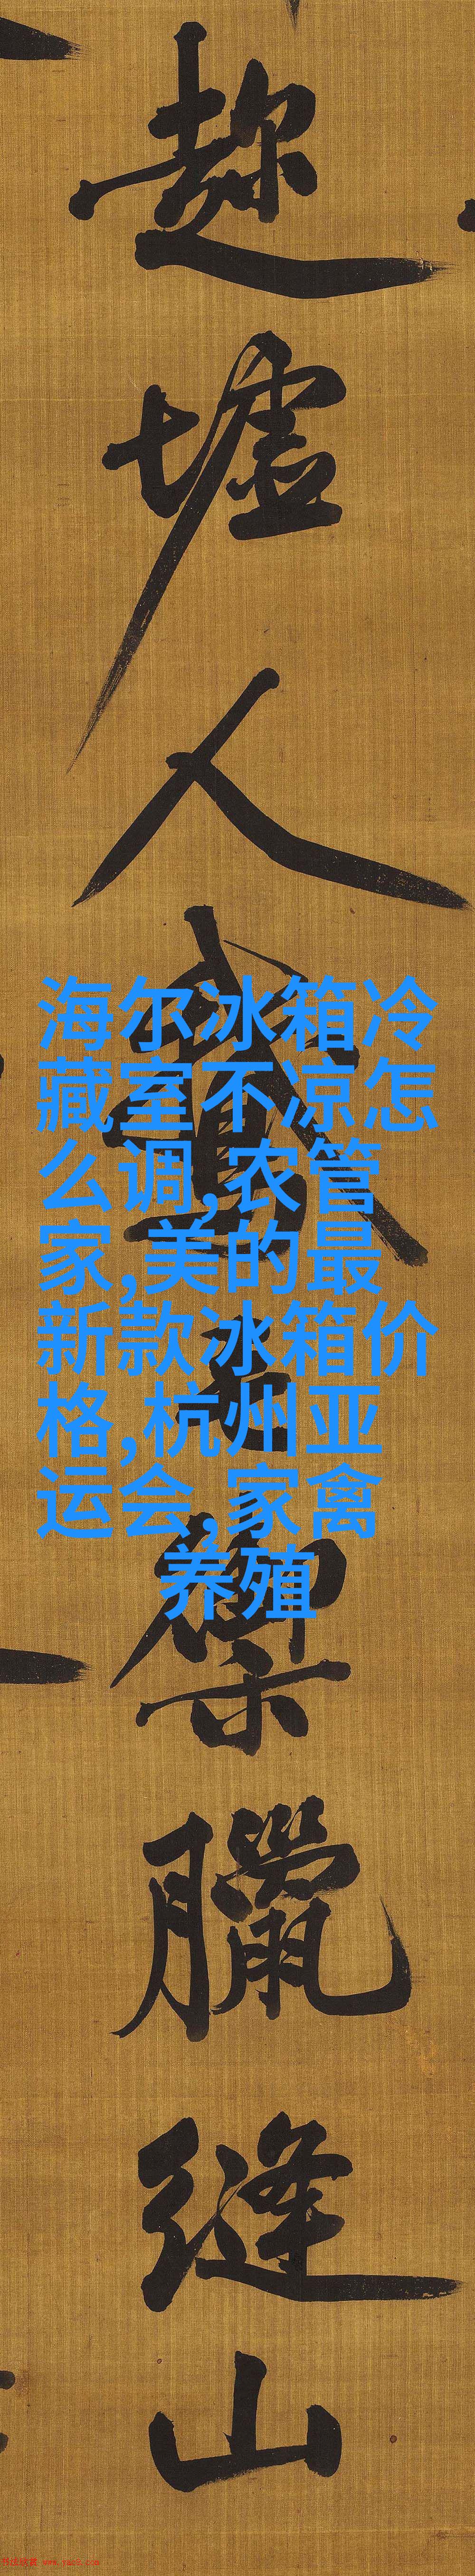 趂墟人鵞毛禦臘縫山
海尔冰箱冷
藏室不凉怎
么调,农管
家,美的最
新款冰箱价
格,杭州亚
运会,家禽
养殖